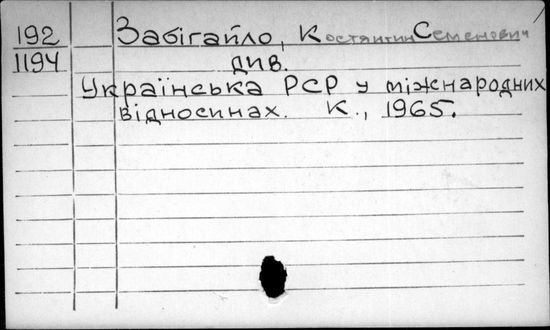 192 Забігайло, Костянтин Семенович
1194 див.
Українська РСР у міжнародних
відносинах. К., 1965.